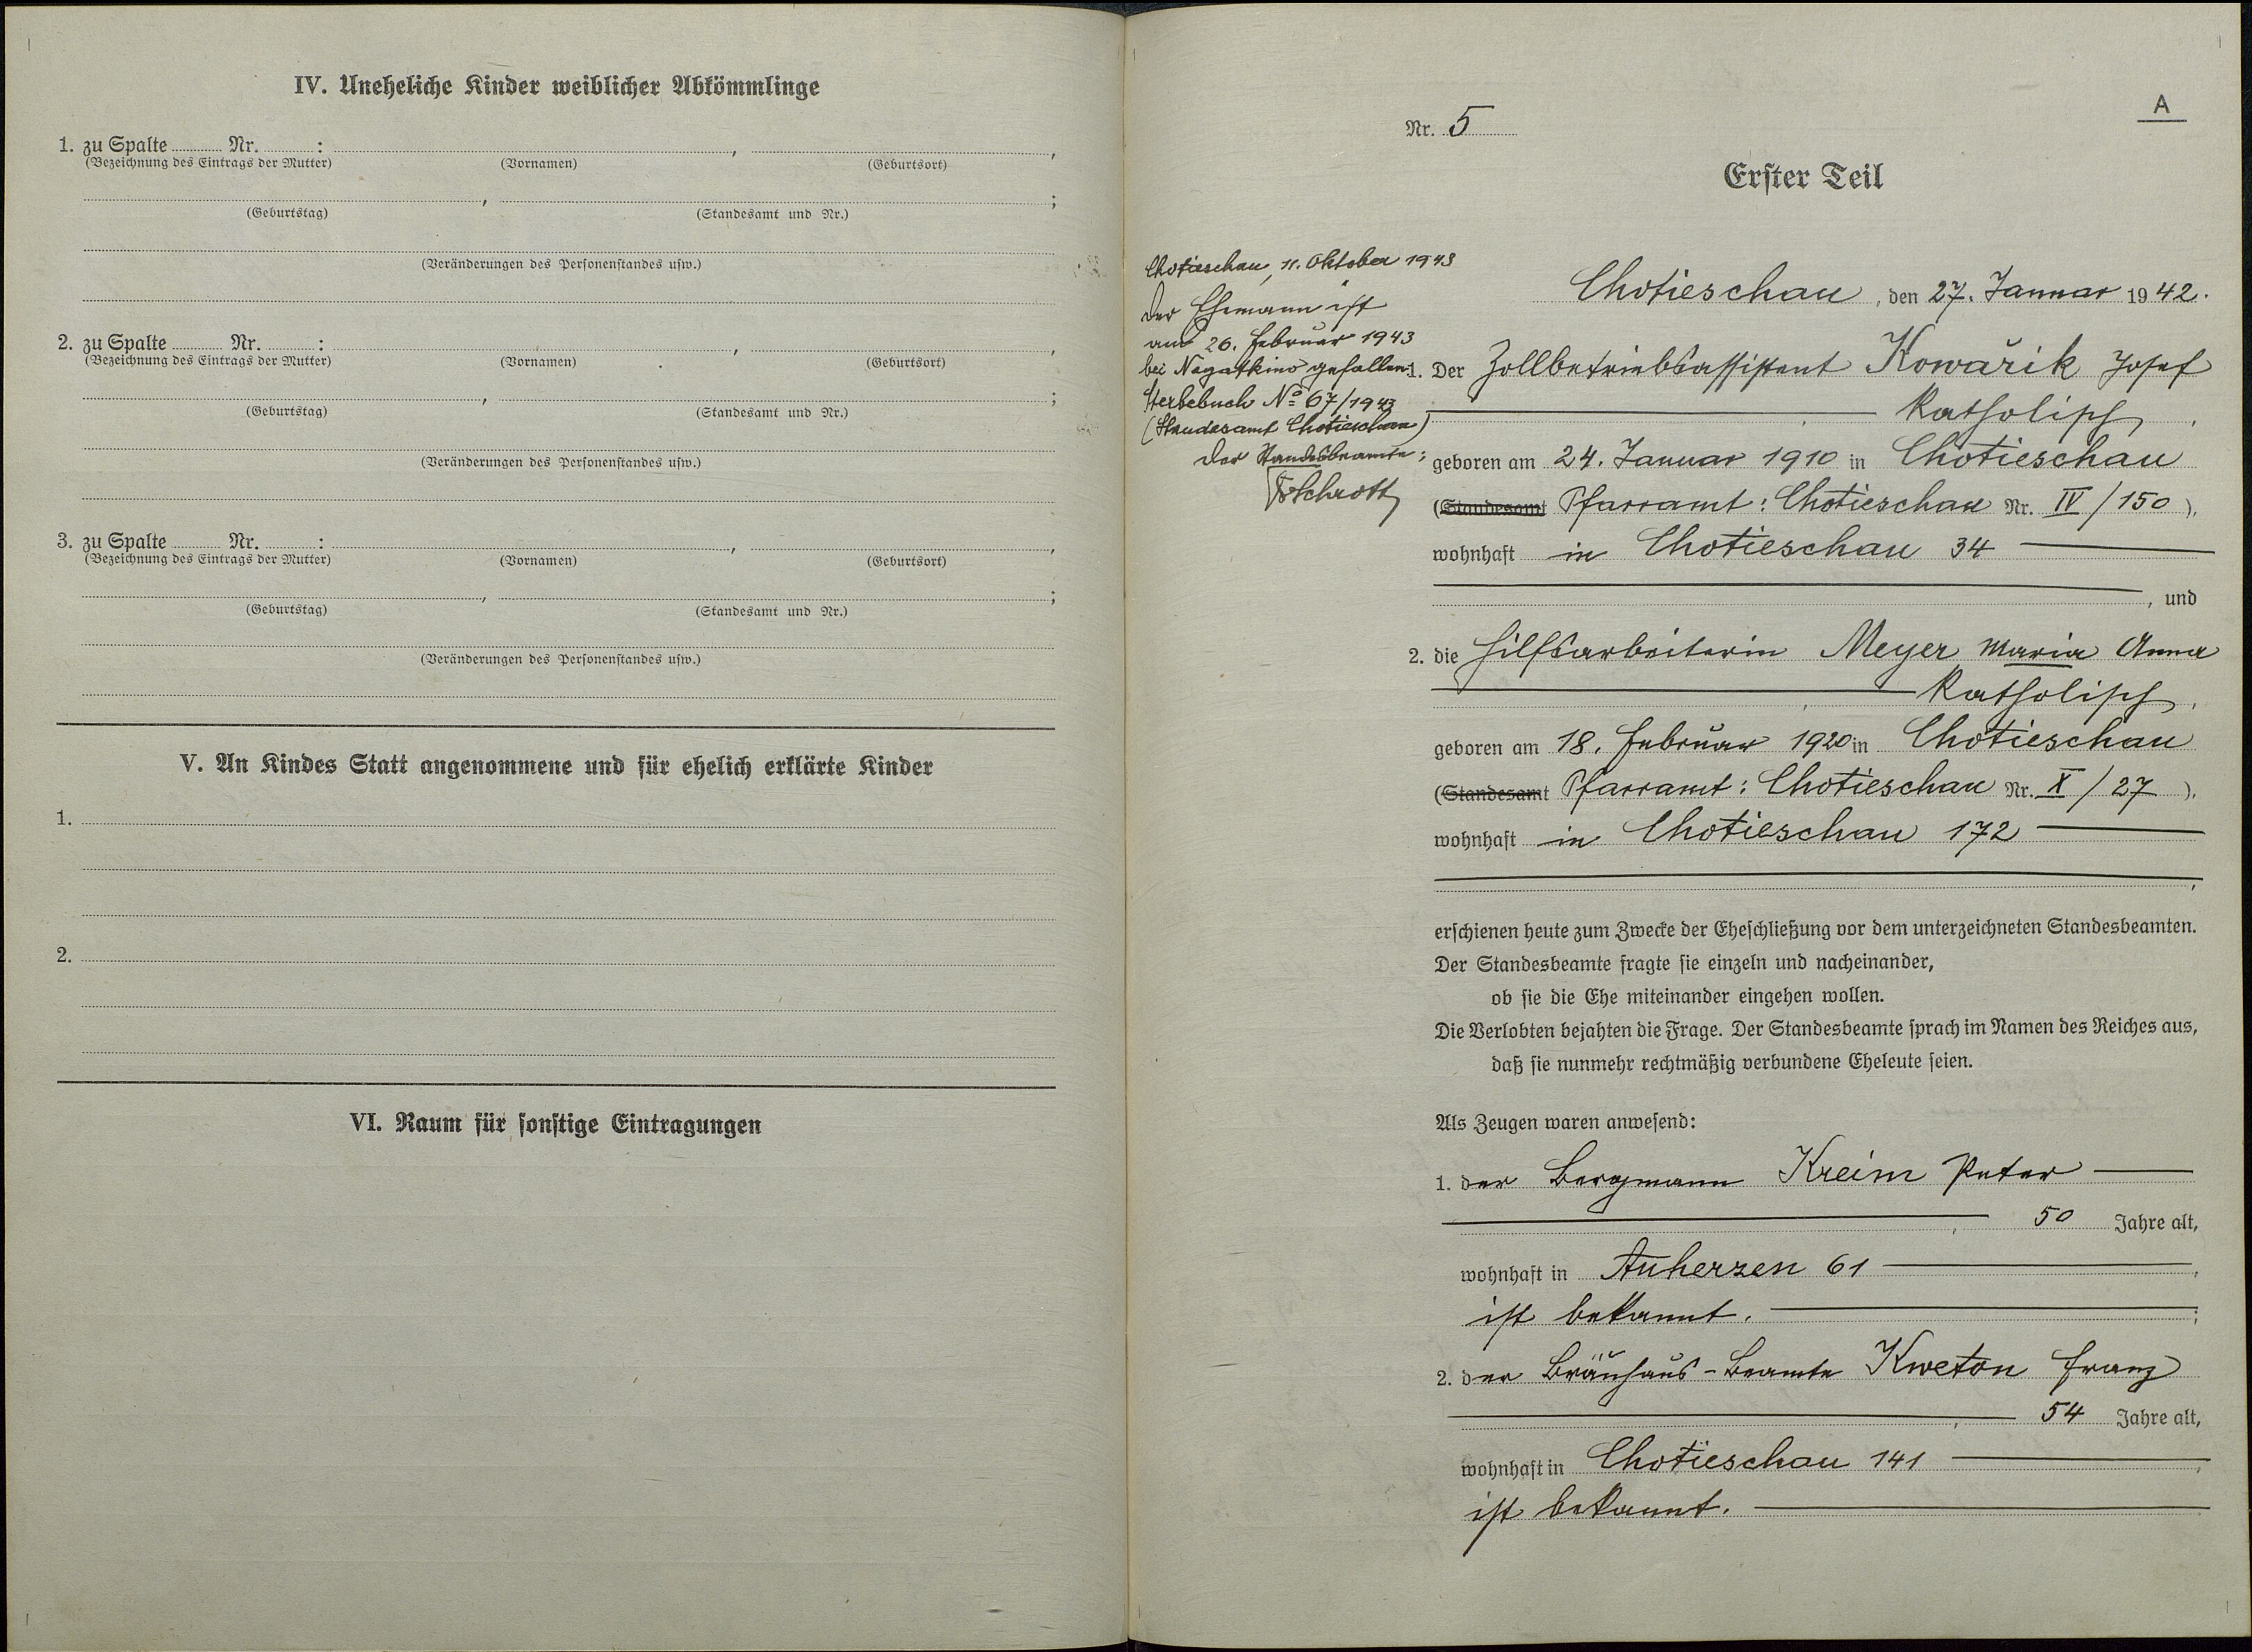 IV. Uneheliche Kinder weiblicher Abkömmlinge
1. zu Spalte Nr. : , ,
(Bezeichnung des Eintrags der Mutter) (Vornamen) (Geburtsort)
, ;
(Geburtstag) (Standesamt und Nr.)
(Veränderungen des Personenstandes usw.)
2. zu Spalte Nr. : , ,
(Bezeichnung des Eintrags der Mutter) (Vornamen) (Geburtsort)
, ;
(Geburtstag) (Standesamt und Nr.)
(Veränderungen des Personenstandes usw.)
3. zu Spalte Nr. : , ,
(Bezeichnung des Eintrags der Mutter) (Vornamen) (Geburtsort)
, ;
(Geburtstag) (Standesamt und Nr.)
(Veränderungen des Personenstandes usw.)
V. An Kindes Statt angenommene und für ehelich erklärte Kinder
1.
2.
VI. Raum für sonstige Eintragungen
A
Nr. 5
Erster Teil
Chotieschau, 11. Oktober 1943
Der Ehemann ist
am 26. Februar 1943
bei Nagatkino gefallen.
Sterbebuch No 67/1943
(Standesamt Chotieschau)
Der Standesbeamte:
Schrott
Chotieschau, den 27. Januar 1942.
1. Der Zollbetriebsassistent Kowařik Josef
katholisch,
geboren am 24. Januar 1910 in Chotieschau
(Standesamt Pfarramt: Chotieschau Nr. IV/150),
wohnhaft in Chotieschau 34
, und
2. die Hilfsarbeiterin Meyer Maria Anna
katholisch,
geboren am 18. Februar 1920 in Chotieschau
(Standesamt Pfarramt: Chotieschau Nr. X/27),
wohnhaft in Chotieschau 172
,
erschienen heute zum Zwecke der Eheschließung vor dem unterzeichneten Standesbeamten.
Der Standesbeamte fragte sie einzeln und nacheinander,
ob sie die Ehe miteinander eingehen wollen.
Die Verlobten bejahten die Frage. Der Standesbeamte sprach im Namen des Reiches aus,
daß sie nunmehr rechtmäßig verbundene Eheleute seien.
Als Zeugen waren anwesend:
1. der Bergmann Kreim Peter
, 50 Jahre alt,
wohnhaft in Auherzen 61,
ist bekannt. ;
2. der Bräuhaus-Beamte Kweton Franz
, 54 Jahre alt,
wohnhaft in Chotieschau 141,
ist bekannt.